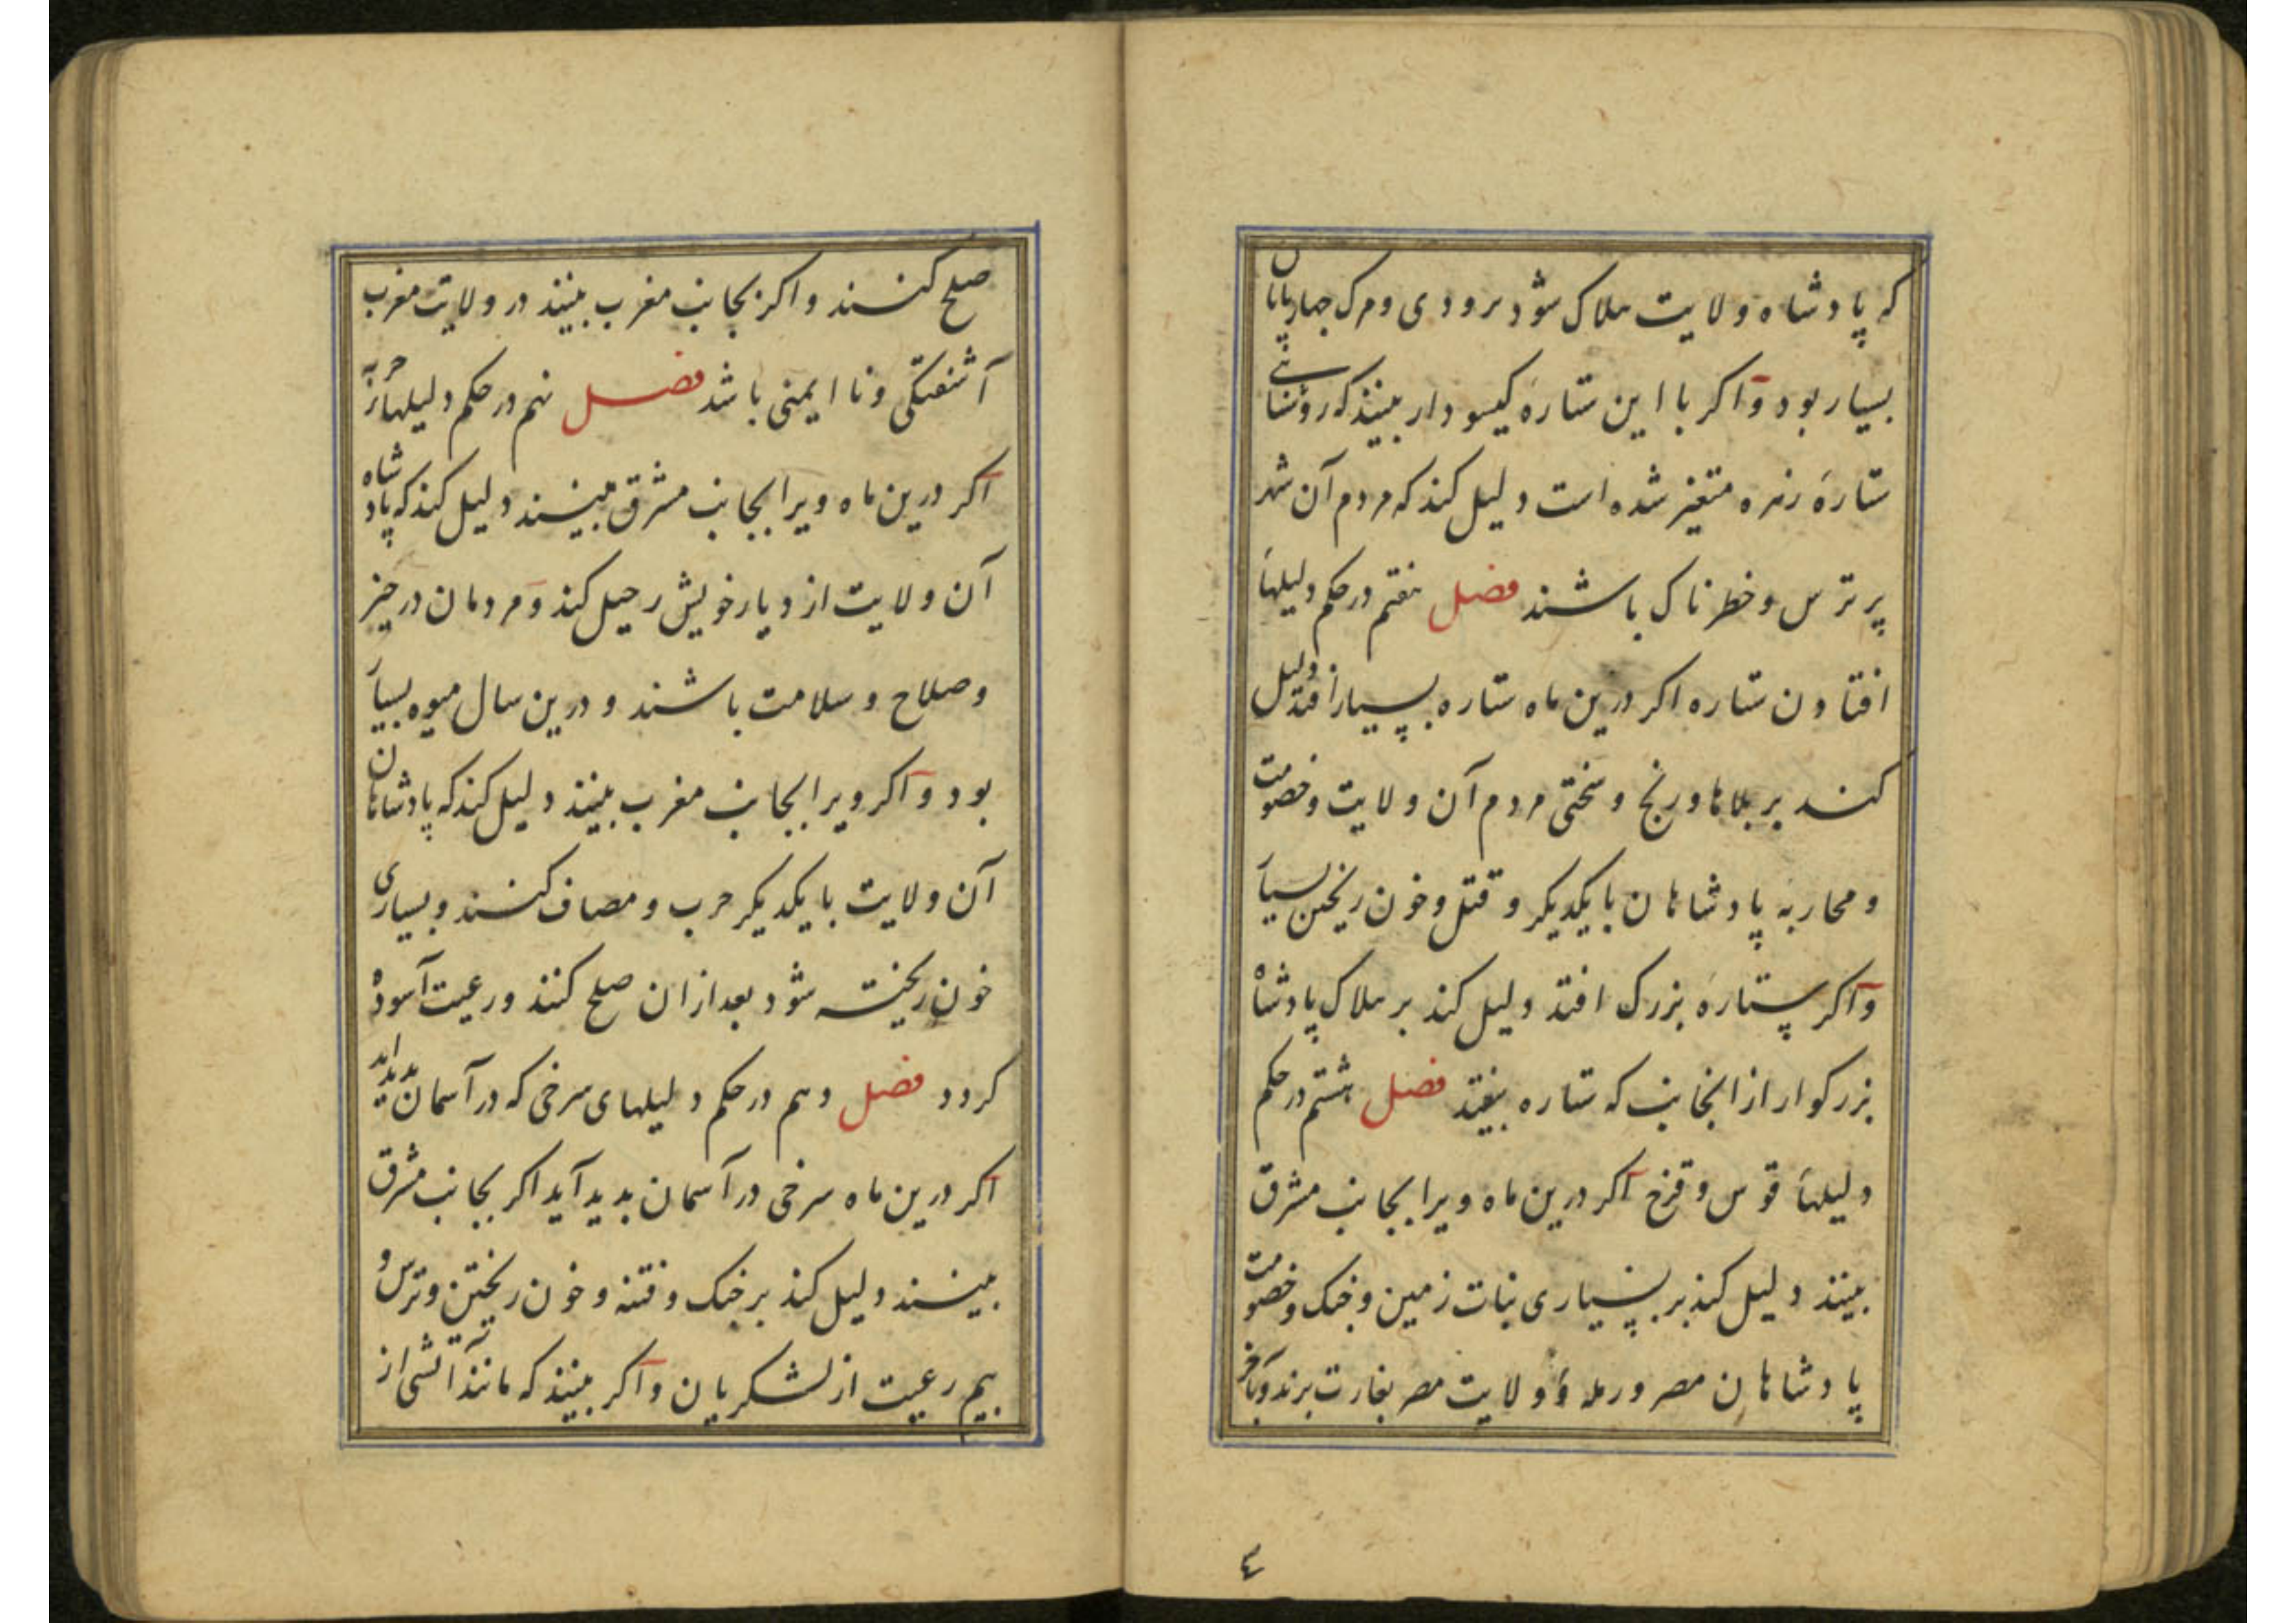 که پادشاه ولایت هلاک شود بزودی و مرک چهارپایان
بسیار بود و اکر با این ستارهٔ کیسو دار بینند که روشنائی
ستارهٔ زهره متغیر شده است دلیل کند که مردم آن شهر
پر ترس و خطرناک باشند فصل هفتم در حکم دلیلهاء
افتادن ستاره اکر درین ماه ستاره بسیار افتد دلیل
کند بر بلاها و رنج و سختی مردم آن ولایت و خصومت
و محاربهٔ پادشاهان با یکدیکر و قتل و خون ریختن بسیار
و اکر ستارهٔ بزرک افتد دلیل کند بر هلاک پادشاه
بزرکوار از انجانب که ستاره بیفتد فصل هشتم در حکم
دلیلهاء قوس و قزح اکر درین ماه ویرا بجانب مشرق
بینند دلیل کند بر بسیاری نبات زمین و جنک و خصومت
پادشاهان مصر و رمله و ولایت مصر بغارت برند و بآخر
٤
صلح کنند و اکر بجانب مغرب بینند در ولایت مغرب
آشفتکی و نا ایمنی باشد فصل نهم در حکم دلیلهاء
اکر درین ماه ویرا بجانب مشرق بینند دلیل کند که پادشاه
آن ولایت از دیار خویش رحیل کند و مردمان در خیر
و صلاح و سلامت باشند و درین سال میوه بسیار
بود و اکر ویرا بجانب مغرب بینند دلیل کند که پادشاهان
آن ولایت با یکدیکر حرب و مصاف کنند و بسیاری
خون ریخته شود بعد ازان صلح کنند و رعیت آسوده
کردد فصل دهم در حکم دلیلهای سرخی که در آسمان بدید اید
اکر درین ماه سرخی در آسمان بدید آید اکر بجانب مشرق
بینند دلیل کند بر جنک و فتنه و خون ریختن و ترس و
بیم رعیت از لشکریان و اکر بینند که مانند آتشی از